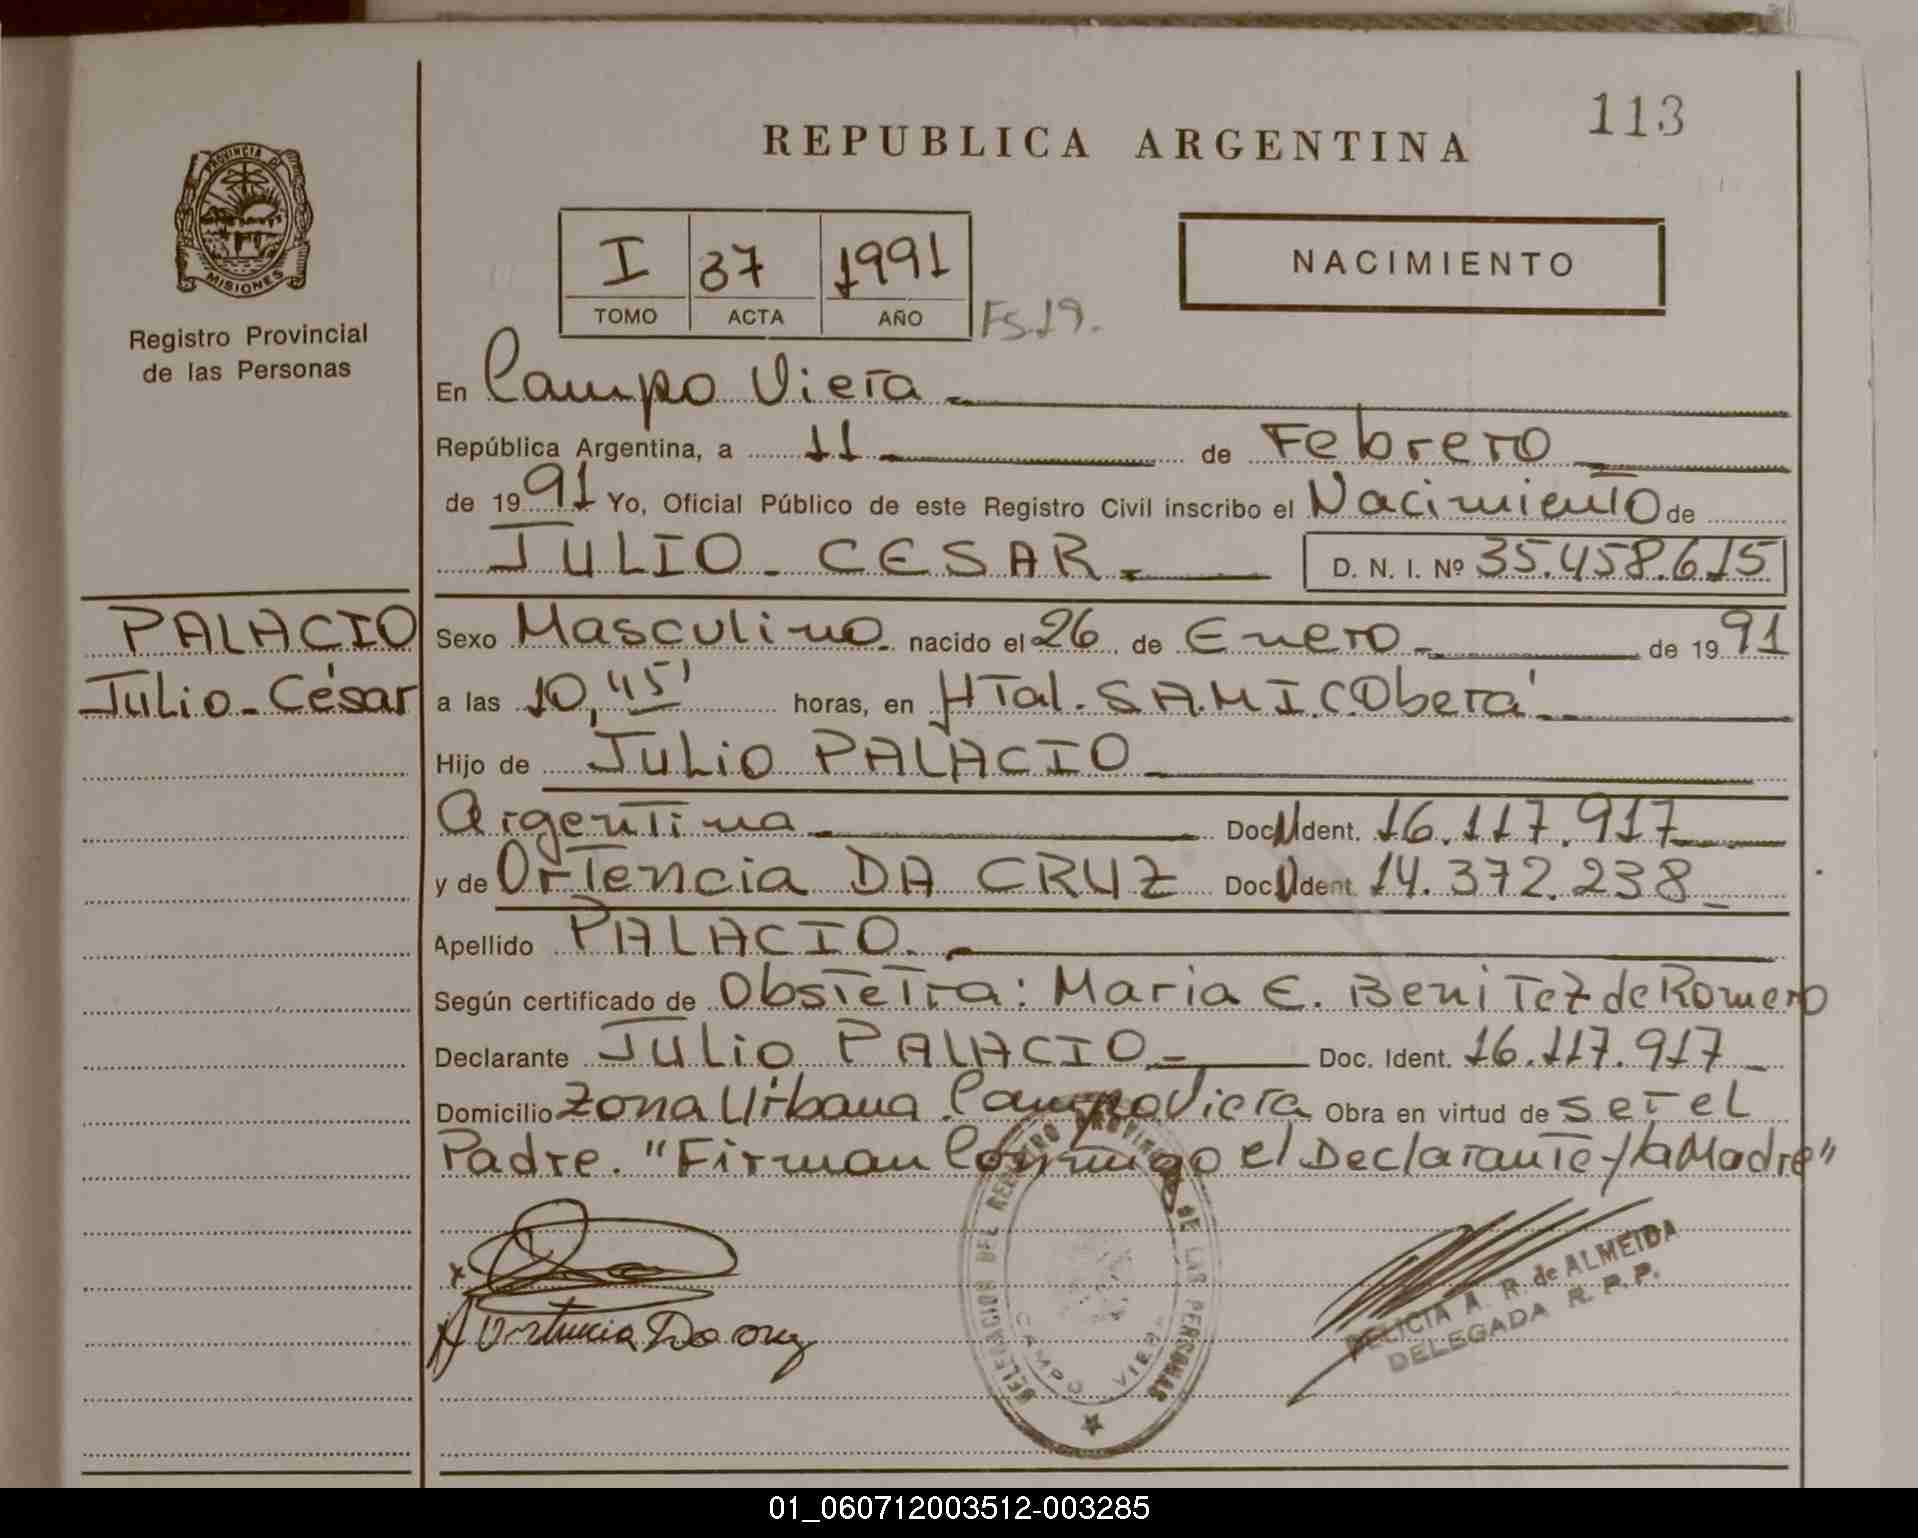 113
REPUBLICA ARGENTINA
PROVINCIA DE
MISIONES
Registro Provincial
de las Personas
I 37 1991
TOMO ACTA AÑO
Fs.19.
NACIMIENTO
En Campo Viera
República Argentina, a 11 de Febrero
de 1991 Yo, Oficial Público de este Registro Civil inscribo el Nacimiento de
JULIO - CESAR. D. N. I. Nº 35.458.615
PALACIO
Julio - César
Sexo Masculino. nacido el 26 de Enero de 1991
a las 10,45' horas, en HTal. S.A.M.I.C. Oberá
Hijo de Julio PALACIO
Argentina Doc. Ident. 16.117.917
y de Ortencia DA CRUZ Doc. Ident. 14.372.238
Apellido PALACIO.
Según certificado de Obstetra: Maria E. Benitez de Romero
Declarante Julio PALACIO. Doc. Ident. 16.117.917
Domicilio Zona Urbana Campo Viera Obra en virtud de ser el
Padre. "Firman Conmigo el Declarante y la Madre"
Ortencia Da cruz
DELEGACION DEL REGISTRO PROVINCIAL DE LAS PERSONAS
CAMPO VIERA
DELICIA A. R. de ALMEIDA
DELEGADA R. P. P.
01_060712003512-003285